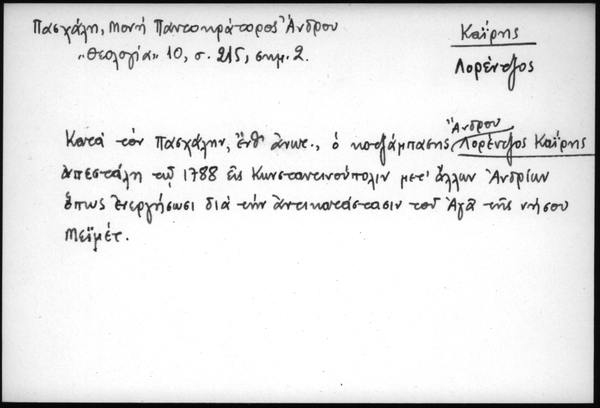 Πασχάλη, Μονή Παντοκράτορος Ἄνδρου
"Θεολογία" 10, σ. 215, σημ. 2.
Καΐρης
Λορέντζος
Κατὰ τὸν Πασχάλην, ἔνθ' ἄνωτ., ὁ κοτζάμπασης Ἄνδρου Λορέντζος Καΐρης
ἀπεστάλη τῷ 1788 εἰς Κωνσταντινούπολιν μετ' ἄλλων Ἀνδρίων
ὅπως ἐνεργήσωσι διὰ τὴν ἀντικατάστασιν τοῦ Ἀγᾶ τῆς νήσου
Μεϊμέτ.